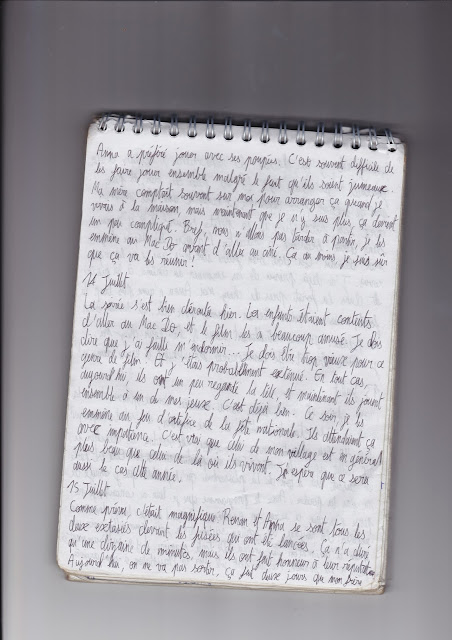 Anna a préféré jouer avec ses poupées. C'est souvent difficile de
les faire jouer ensemble malgré le fait qu'ils soient jumeaux.
Ma mère comptait souvent sur moi pour arranger ça quand je
vivais à la maison, mais maintenant que je n'y suis plus, ça devient
un peu compliqué. Bref, nous n'allons pas tarder à partir, je les
emmène au Mac Do avant d'aller au ciné. Ça au moins, je suis sûr
que ça va les réunir !
14 Juillet
La soirée s'est bien déroulée hier. Les enfants étaient contents
d'aller au Mac Do, et le film les a beaucoup amusé. Je dois
dire que j'ai failli m'endormir... Je dois être trop vieux pour ce
genre de film. Et j'étais probablement extenué. En tout cas,
aujourd'hui, ils ont un peu regardé la télé, et maintenant ils jouent
ensemble à un de mes jeux. C'est déjà bien. Ce soir, je les
emmène au feu d'artifice de la fête nationale. Ils attendaient ça
avec impatience. C'est vrai que celui de mon village est en général
plus beau que celui de là où ils vivent. J'espère que ce sera
aussi le cas cette année.
15 Juillet
Comme prévu, c'était magnifique. Renan et Anna se sont tous les
deux extasiés devant les fusées qui ont été lancées. Ça n'a duré
qu'une dizaine de minutes, mais ils ont fait honneur à leur réputation.
Aujourd'hui, on ne va pas sortir, ça fait deux jours que mon frère